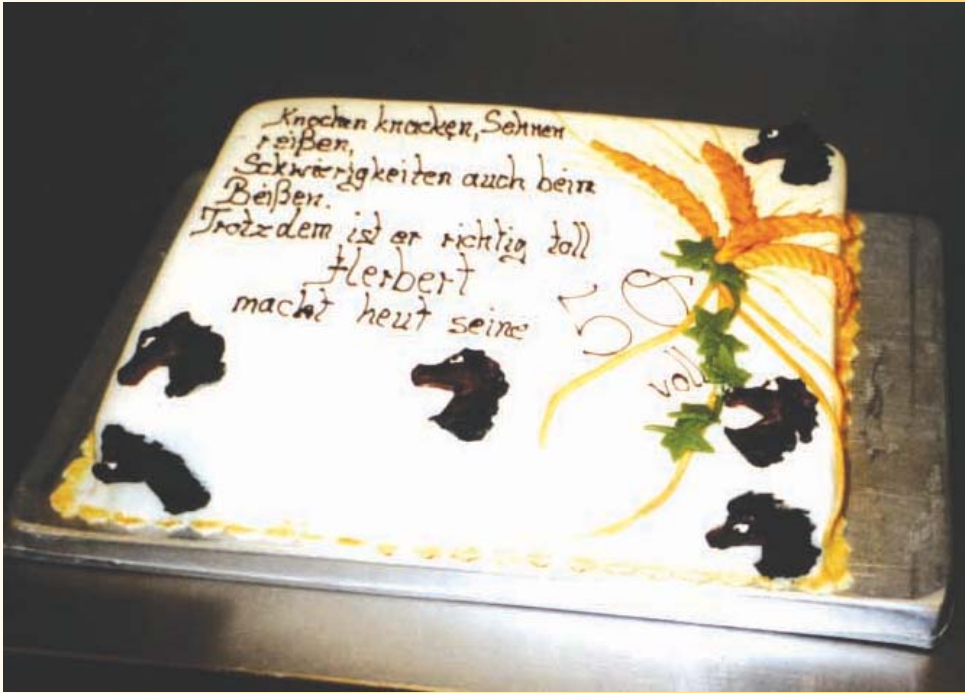 Knochen knacken, Sehnen
reißen,
Schwierigkeiten auch beim
Beißen.
Trotzdem ist er richtig toll
Herbert
macht heut seine 50
voll